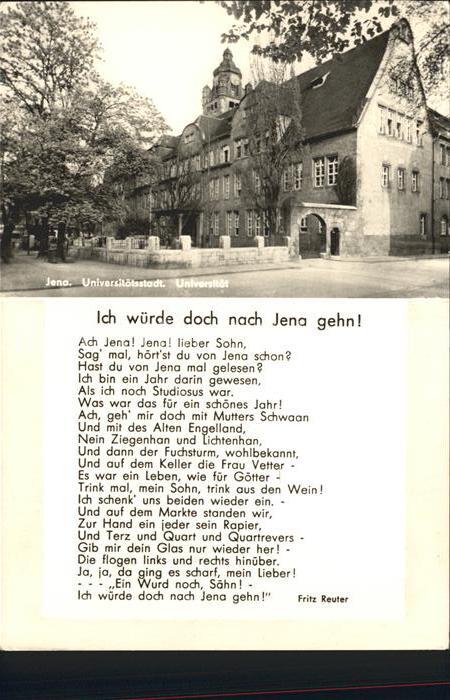 Jena. Universitätsstadt. Universität
Ich würde doch nach Jena gehn!
Ach Jena! Jena! lieber Sohn,
Sag' mal, hört'st du von Jena schon?
Hast du von Jena mal gelesen?
Ich bin ein Jahr darin gewesen,
Als ich noch Studiosus war.
Was war das für ein schönes Jahr!
Ach, geh' mir doch mit Mutters Schwaan
Und mit des Alten Engelland,
Nein Ziegenhan und Lichtenhan,
Und dann der Fuchsturm, wohlbekannt,
Und auf dem Keller die Frau Vetter -
Es war ein Leben, wie für Götter -
Trink mal, mein Sohn, trink aus den Wein!
Ich schenk' uns beiden wieder ein. -
Und auf dem Markte standen wir,
Zur Hand ein jeder sein Rapier,
Und Terz und Quart und Quartrevers -
Gib mir dein Glas nur wieder her! -
Die flogen links und rechts hinüber.
Ja, ja, da ging es scharf, mein Lieber!
- - - „Ein Wurd noch, Sähn! -
Ich würde doch nach Jena gehn!" Fritz Reuter